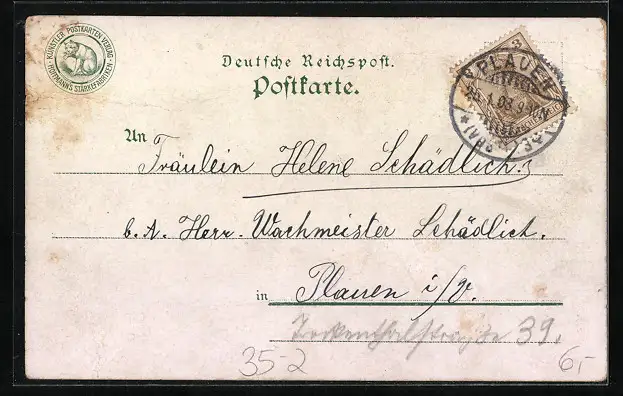 KÜNSTLER POSTKARTEN VERLAG
HOFFMANN'S STÄRKEFABRIKEN
Deutsche Reichspost.
Postkarte.
PLAUEN
An
Fräulein Helene Schädlich.
b. A. Herr Wachmeister Schädlich.
in Plauen i/V.
39.
35-2
6,-